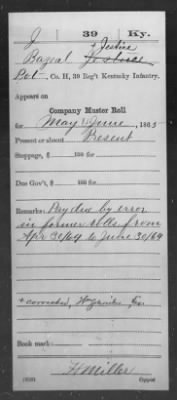 J | 39 | Ky.
+ Justice
Bazeal
Pvt., Co. H, 39 Reg't Kentucky Infantry.
Appears on
Company Muster Roll
for May & June, 1865
Present or absent Present
Stoppage, $ 100 for
Due Gov't, $ 100 for
Remarks: Pay due by error
in former Rolls from
Apr 30/64 to June 30/64
+ corrected,
Book mark:
H Miller
Copyist.